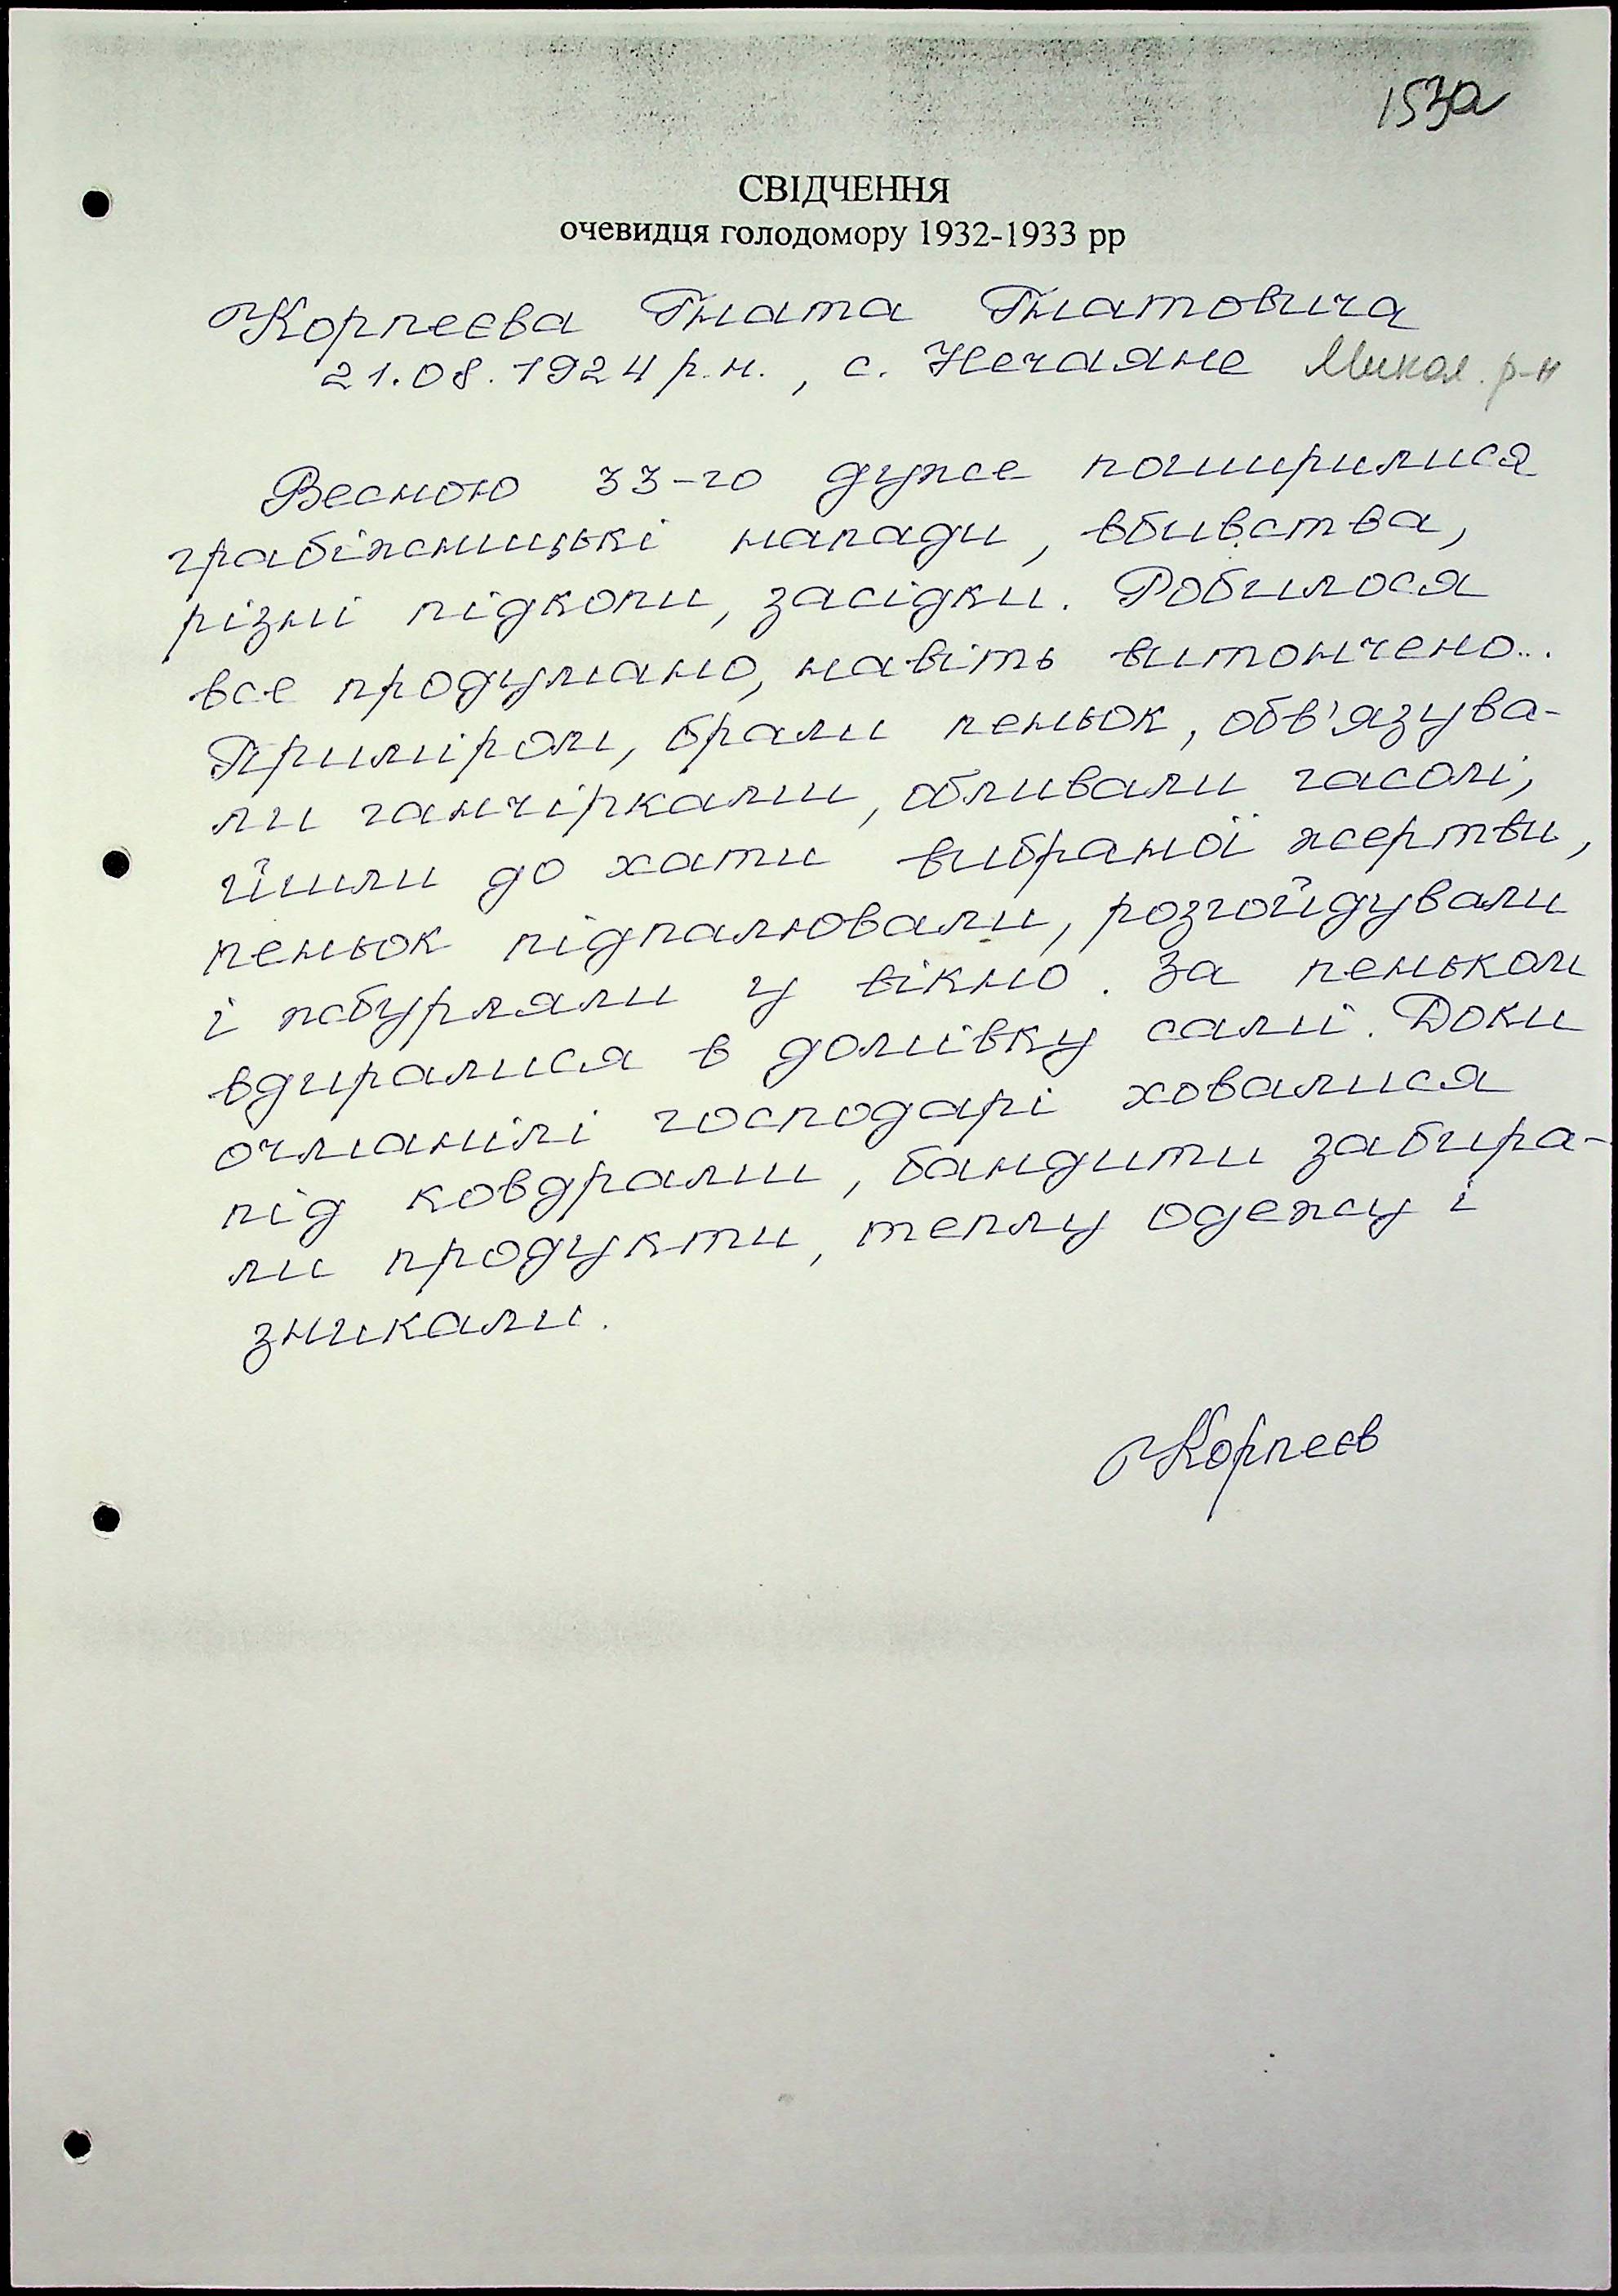 153а
СВІДЧЕННЯ
очевидця голодомору 1932-1933 рр
Корпєєва Гната Гнатовича
21.08.1924 р.н., с. Нечаяне Микол. р-н
Весною 33-го дуже поширилися
грабіжницькі напади, вбивства,
різні підкопи, засідки. Робилося
все продумано, навіть витончено...
Приміром, брали пеньок, обв'язува-
ли ганчірками, обливали гасом,
йшли до хати вибраної жертви,
пеньок підпалювали, розгойдували
і жбурляли у вікно. За пеньком
вдиралися в домівку самі. Доки
очманілі господарі ховалися
під ковдрами, бандити забира-
ли продукти, теплу одежу і
зникали.
Корпєєв